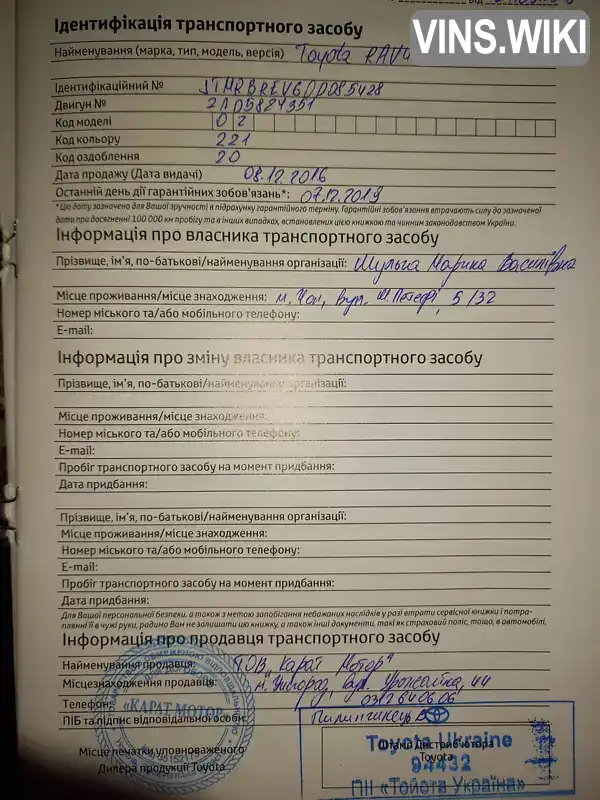 від
VINS.WIKI
Ідентифікація транспортного засобу
Найменування (марка, тип, модель, версія) Toyota RAV4
Ідентифікаційний № JTMRBREV60D085428
Двигун № 2AD5824351
Код моделі 02
Код кольору 221
Код оздоблення 20
Дата продажу (Дата видачі) 08.12.2016
Останній день дії гарантійних зобов'язань*: 07.12.2019
* Цю дату зазначено для Вашої зручності в підрахунку гарантійного терміну. Гарантійні зобов'язання втрачають силу до зазначеної
дати при досягненні 100 000 км пробігу та в інших випадках, встановлених цією книжкою та чинним законодавством України.
Інформація про власника транспортного засобу
Прізвище, ім'я, по-батькові/найменування організації: Шульга Марина Василівна
Місце проживання/місце знаходження: м. Чоп, вул. Ш. Петефі, 5/32
Номер міського та/або мобільного телефону:
E-mail:
Інформація про зміну власника транспортного засобу
Прізвище, ім'я, по-батькові/найменування організації:
Місце проживання/місце знаходження:
Номер міського та/або мобільного телефону:
E-mail:
Пробіг транспортного засобу на момент придбання:
Дата придбання:
Прізвище, ім'я, по-батькові/найменування організації:
Місце проживання/місце знаходження:
Номер міського та/або мобільного телефону:
E-mail:
Пробіг транспортного засобу на момент придбання:
Дата придбання:
Для Вашої персональної безпеки, а також з метою запобігання небажаних наслідків у разі втрати сервісної книжки і потра-
плянні її в чужі руки, радимо Вам не залишати цю книжку, а також інші документи, такі як страховий поліс, тощо, в автомобілі.
Інформація про продавця транспортного засобу
Найменування продавця: ТОВ "Карат Мотор"
Місцезнаходження продавця: м. Ужгород, вул. Урожайна, 44
Телефон: 0312640606
ПІБ та підпис відповідальної особи:
"КАРАТ МОТОР"
Місце печатки уповноваженого
Дилера продукції Toyota
Штамп Дистриб'ютора
Toyota
Toyota Ukraine
94432
ПІІ «Тойота Україна»